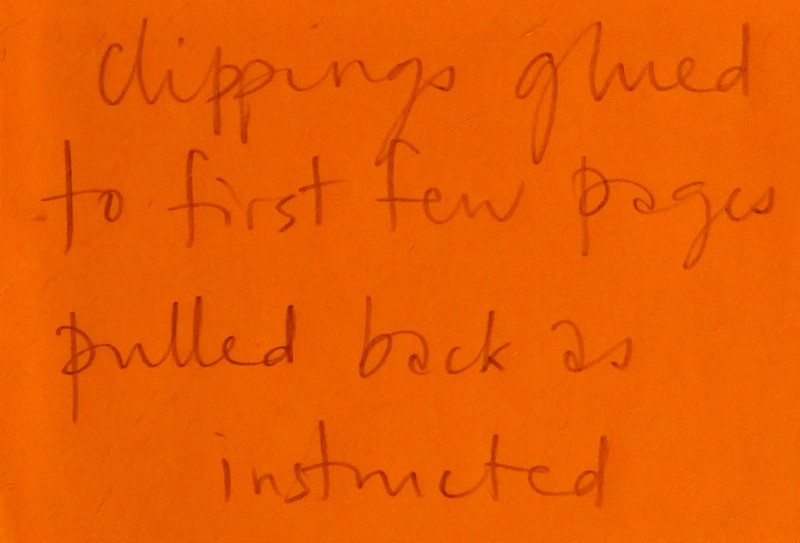 clippings glued
to first few pages
pulled back as
instructed